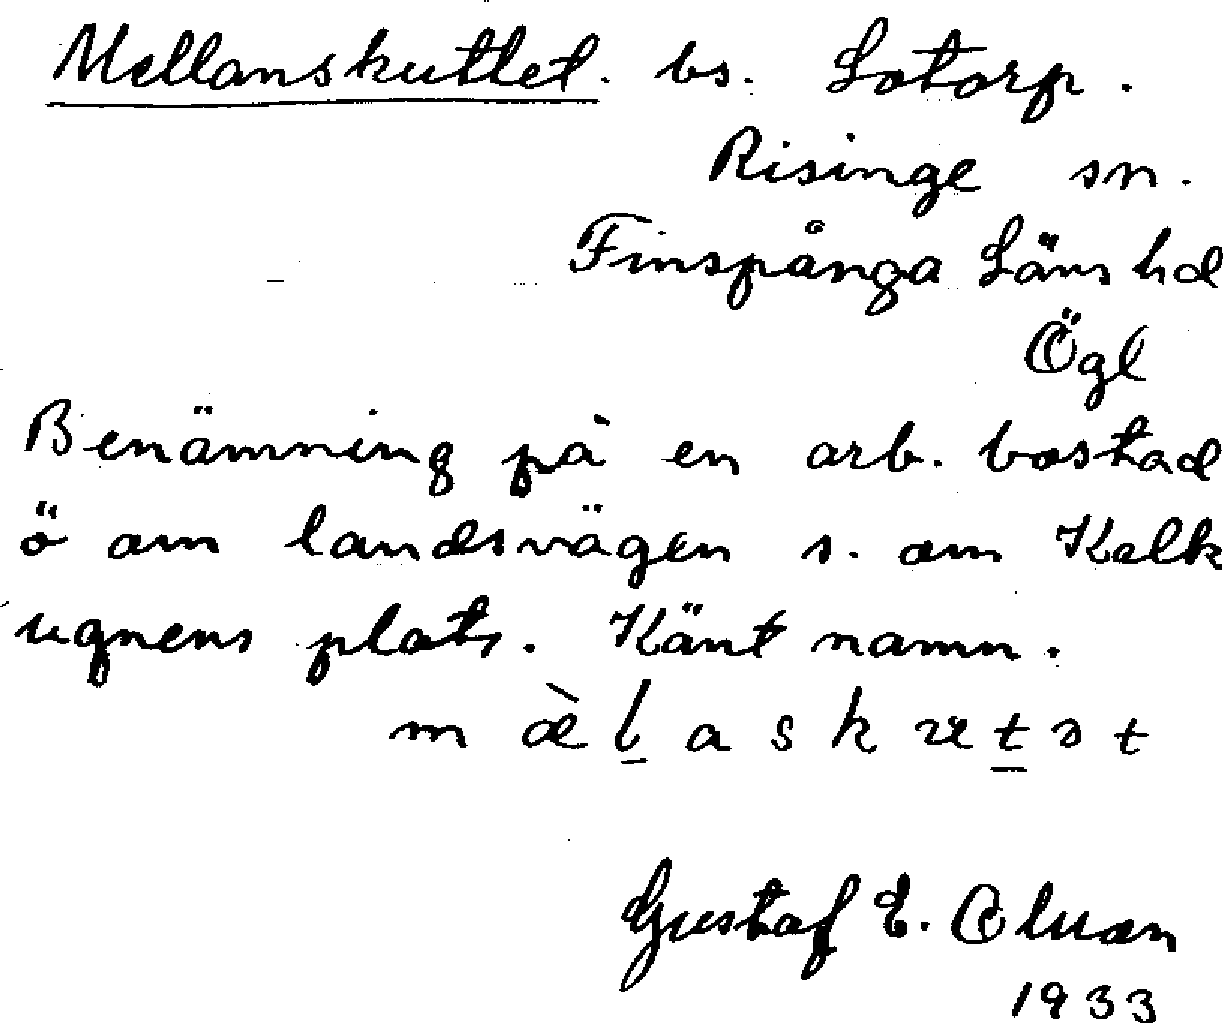 Mellanskuttet. bs. Lotorp.
Risinge sn.
Finspånga Läns hd
Ögl
Benämning på en arb. bostad
ö om landsvägen s. om Kalk
ugnens plats. Känt namn.
m æ̀ l̲ a s k u t̲ ə t
Gustaf E.
1933